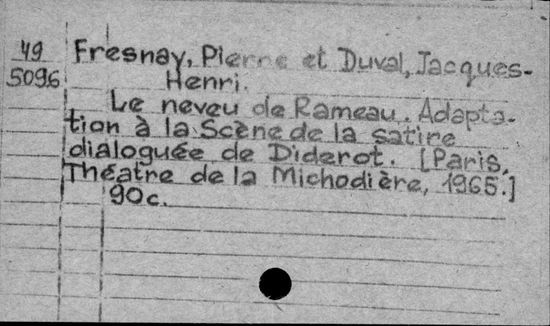 49 Fresnay, Pierre et Duval, Jacques-
5096 Henri.
Le neveu de Rameau. Adapta-
tion à la Scène de la satire
dialoguée de Diderot. [Paris,
Théatre de la Michodière, 1965.]
90c.